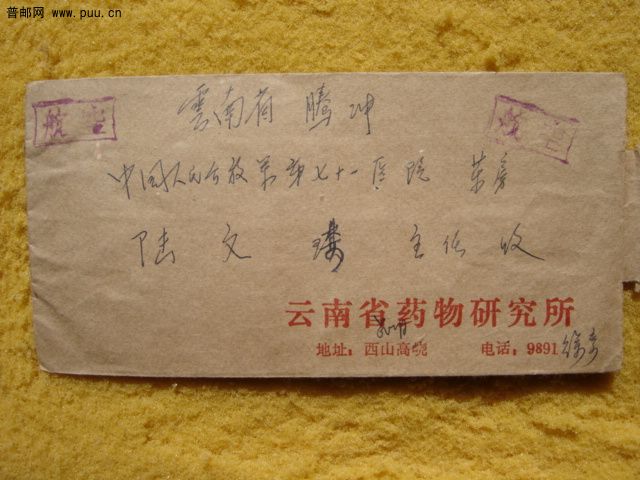 普邮网 www.puu.cn
雲南省 腾冲
航空
航空
中国人民解放军第七十一医院 药房
陆文 主任 收
云南省药物研究所
昆明
地址：西山高峣 电话：9891 徐